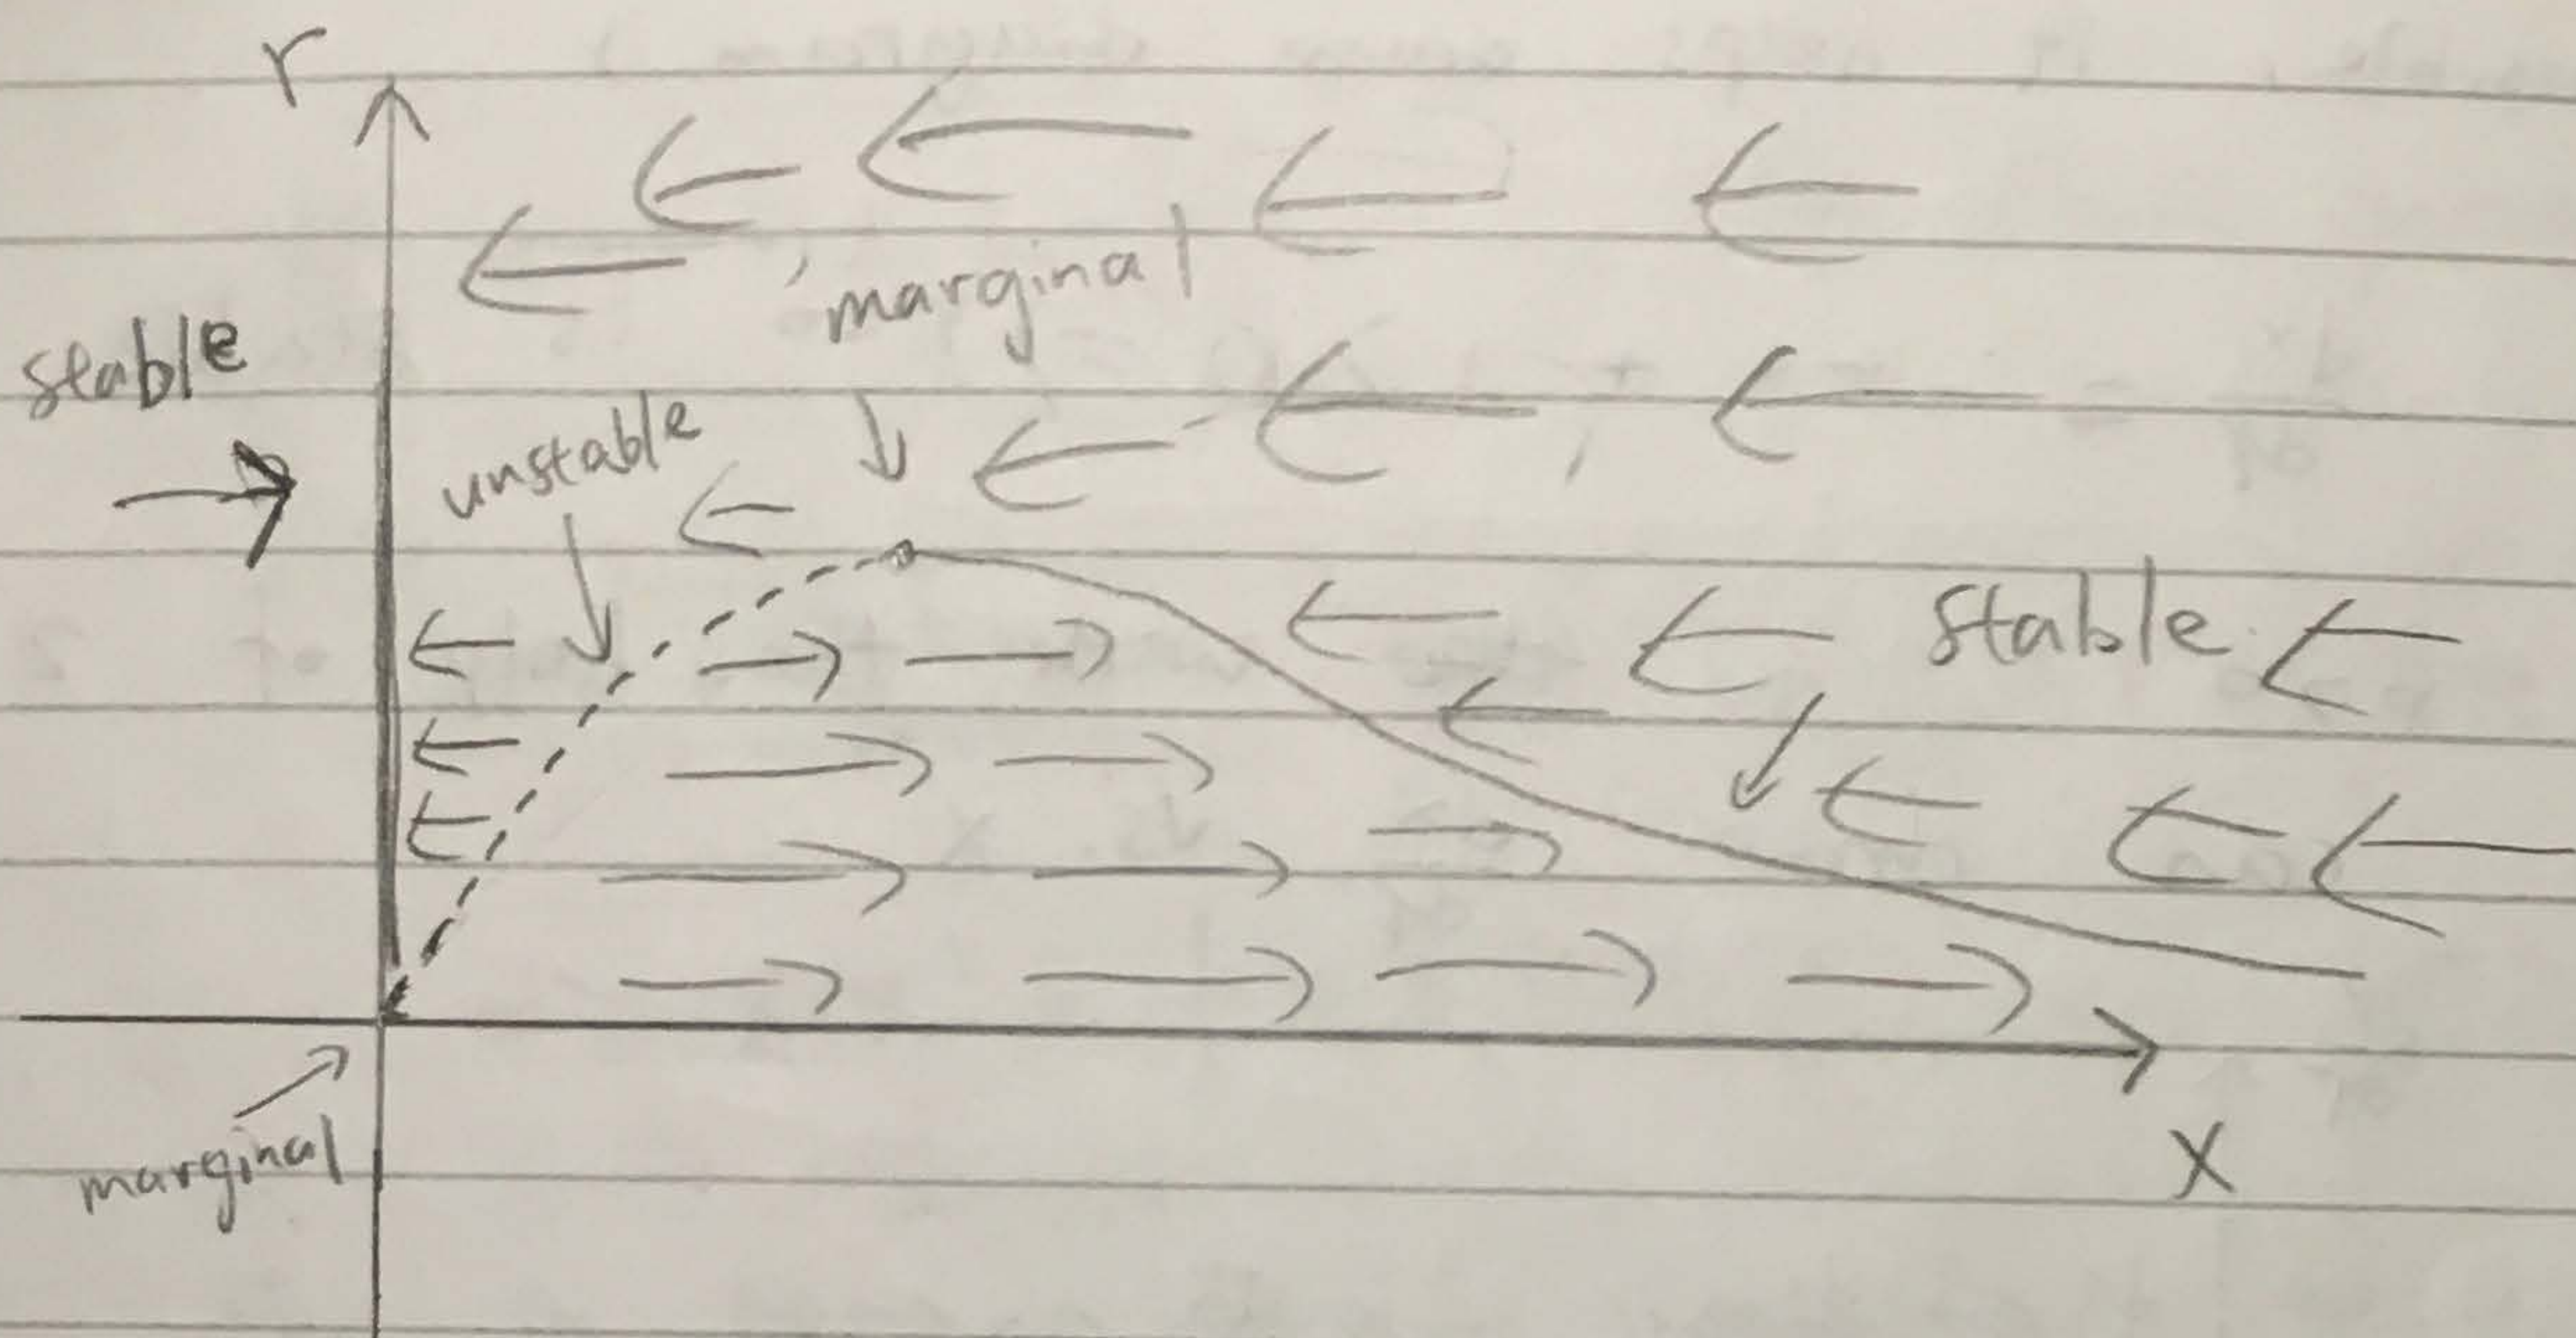 r
marginal
stable
unstable
stable
marginal
X